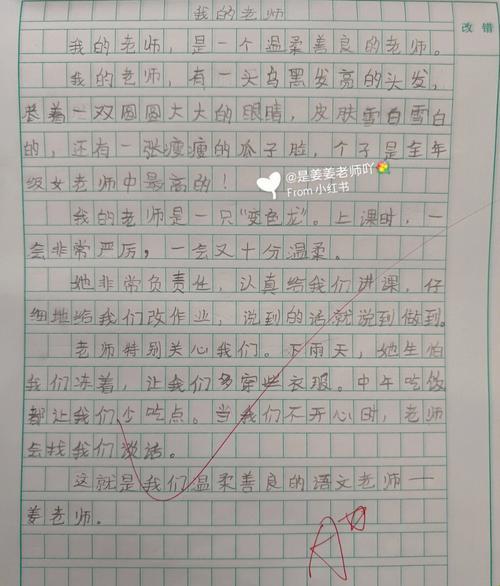 我的老师
改错
我的老师，是一个温柔善良的老师。
我的老师，有一头乌黑发亮的头发，
长着一双圆圆大大的眼睛，皮肤雪白雪白
的，还有一张瘦瘦的瓜子脸，个子是全年
级女老师中最高的！
@是姜姜老师吖
From 小红书
我的老师是一只“变色龙”。上课时，一
会非常严厉，一会又十分温柔。
她非常负责任，认真给我们讲课，仔
细地给我们改作业，说到的话就说到做到。
老师特别关心我们。下雨天，她生怕
我们冻着，让我们多穿些衣服。中午吃饭
都让我们少吃点。当我们不开心时，老师
会找我们谈话。
这就是我们温柔善良的语文老师一
姜老师。
A